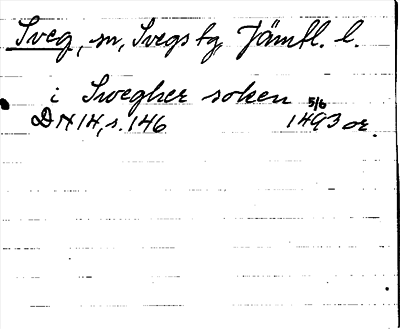 Sveg, sn, Svegs tg Jämtl. l.
i Swegher soken 5/6
DN 14, s. 146 1493 or.